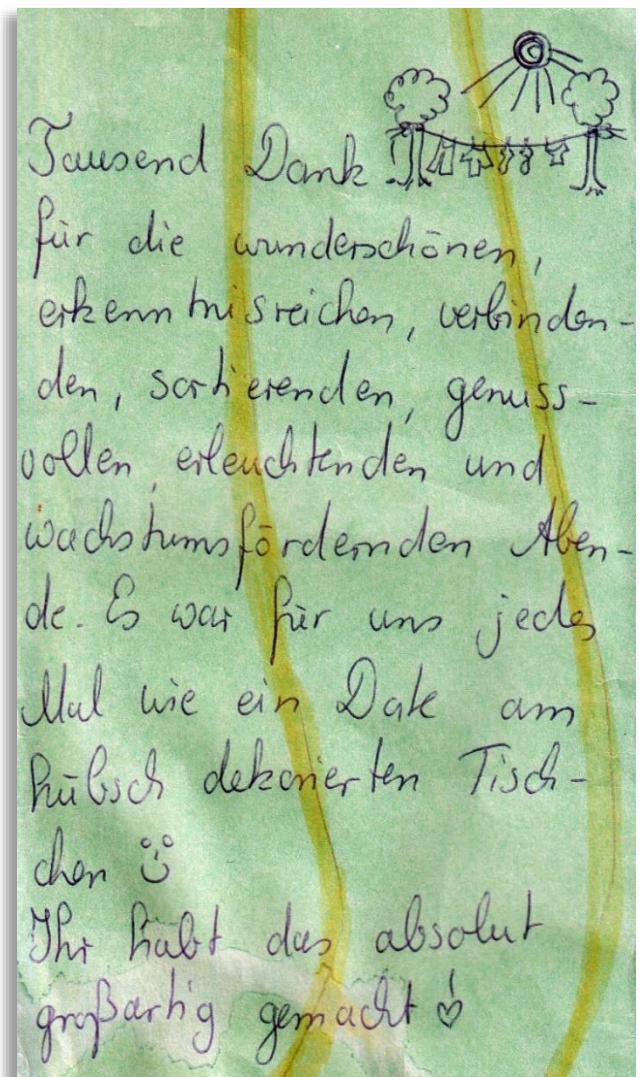 Tausend Dank
für die wunderschönen,
erkenntnisreichen, verbinden-
den, sortierenden, genuss-
vollen, erleuchtenden und
wachstumsfördernden Aben-
de. Es war für uns jedes
Mal wie ein Date am
hübsch dekorierten Tisch-
chen
Ihr habt das absolut
großartig gemacht!